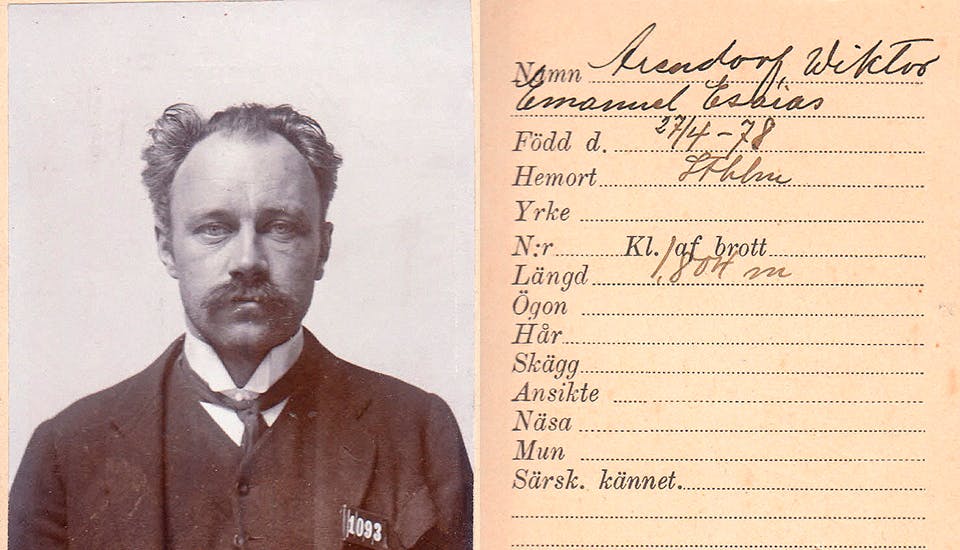 1093
Namn Arendorf, Wiktor
Emanuel Esaias
Född d. 27/4-78
Hemort Sthlm
Yrke
N:r Kl. af brott
Längd 1,804 m
Ögon
Hår
Skägg
Ansikte
Näsa
Mun
Särsk. kännet.